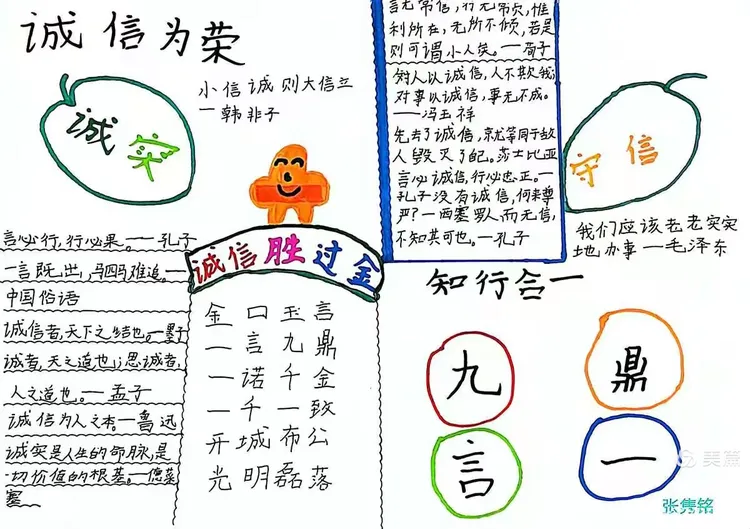 诚信为荣
小信诚则大信立
一韩非子
诚实
言无常信，行无常贞，惟
利所在，无所不倾，若是
则可谓小人矣。—荀子
对人以诚信，人不欺我；
对事以诚信，事无不成。
—冯玉祥
失去了诚信，就等同于敌
人毁灭了己。莎士比亚
言必诚信，行必忠正。—
孔子没有诚信，何来尊
严？—西塞罗人而无信，
不知其可也。—孔子
守信
我们应该老老实实
地办事—毛泽东
诚信胜过金
言必行，行必果。—孔子
一言既出，驷马难追。—
中国俗语
诚信者，天下之结也。—墨子
诚者，天之道也；思诚者，
人之道也。—孟子
诚信为人之本—鲁迅
诚实是人生的命脉，是
一切价值的根基。—德莱
塞
金口玉言
一言九鼎
一诺千金
一千一致
开城布公
光明磊落
知行合一
九鼎
言一
美篇
张隽铭